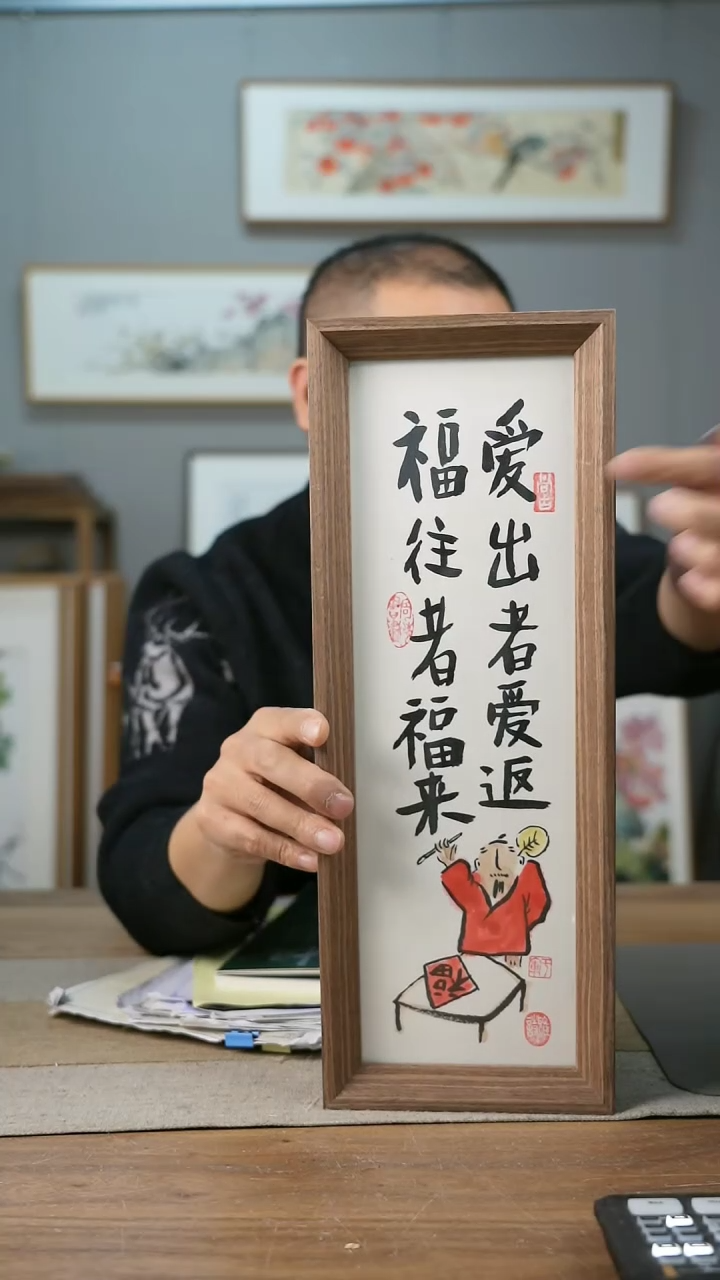 爱出者爱返
福往者福来
福